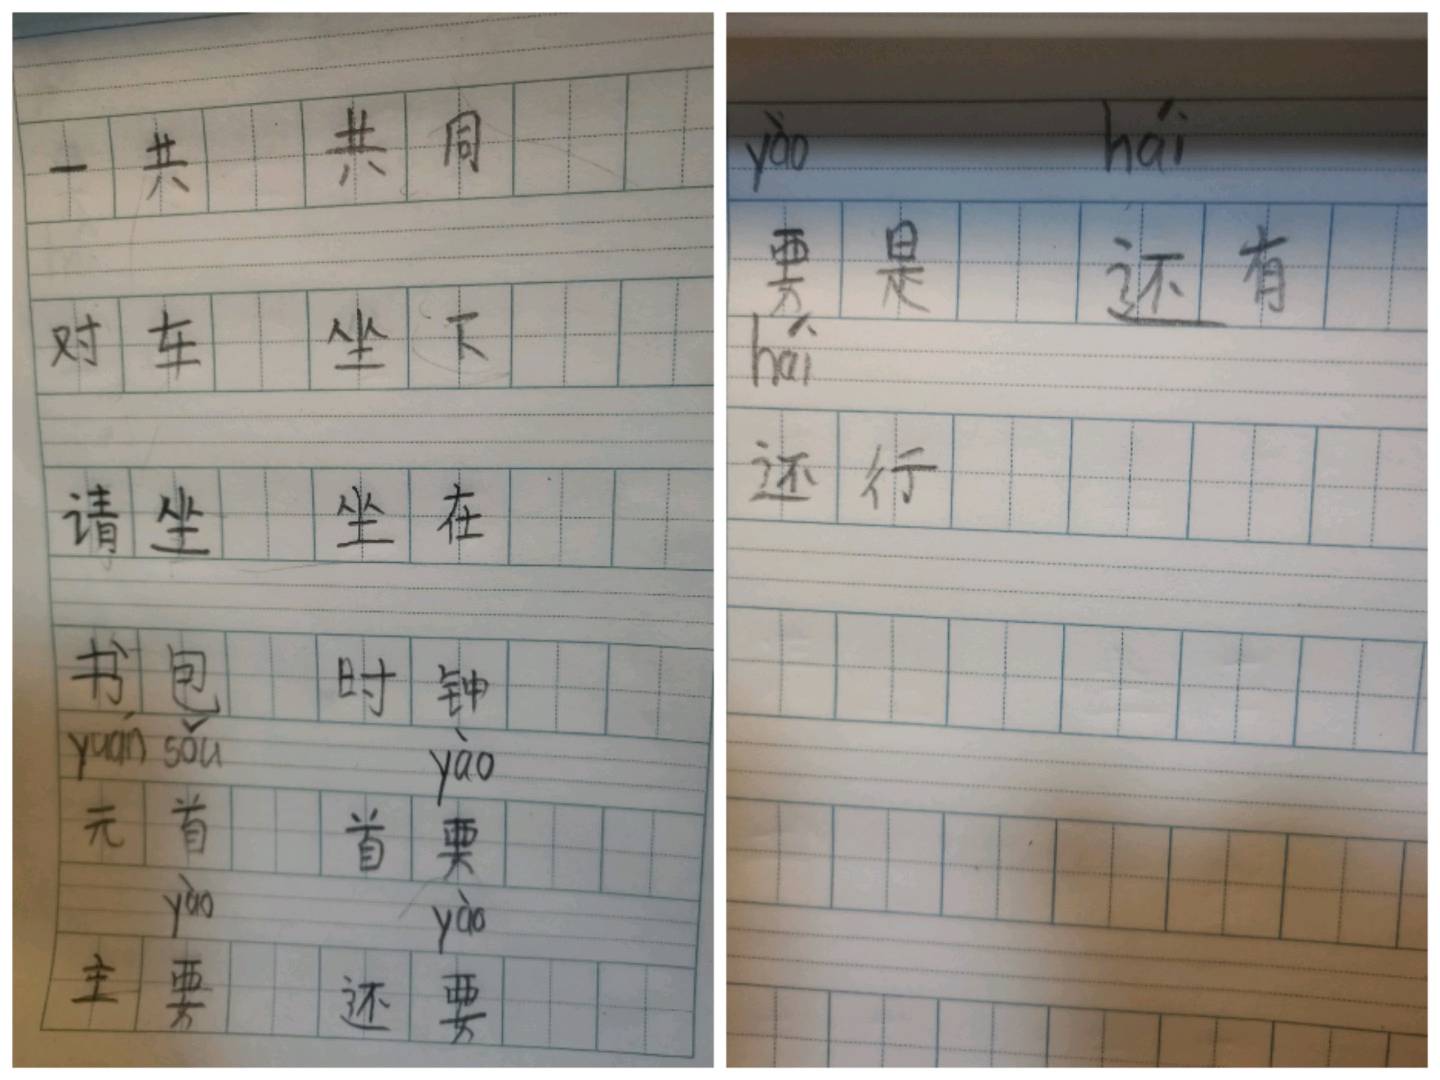 一共 共同
对车 坐下
请坐 坐在
书包 时钟
yuán sǒu yào
元首 首要
yào yào
主要 还要
yào hái
要是 还有
hái
还行